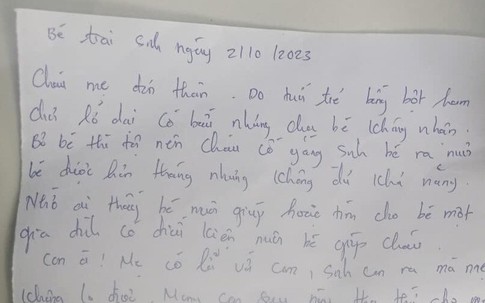 Bé trai sinh ngày 2/10/2023
Cháu mẹ đơn thân. Do tuổi trẻ bồng bột ham
chơi lỡ dại có bầu nhưng cha bé không nhận.
Bỏ bé thì tội nên cháu cố gắng sinh bé ra nuôi
bé được hơn tháng nhưng không đủ khả năng.
Nhờ ai thấy bé nuôi giúp hoặc tìm cho bé một
gia đình có điều kiện nuôi bé giúp cháu.
Con à! Mẹ có lỗi với con, sinh con ra mà mẹ
không lo được. Mong con sau này